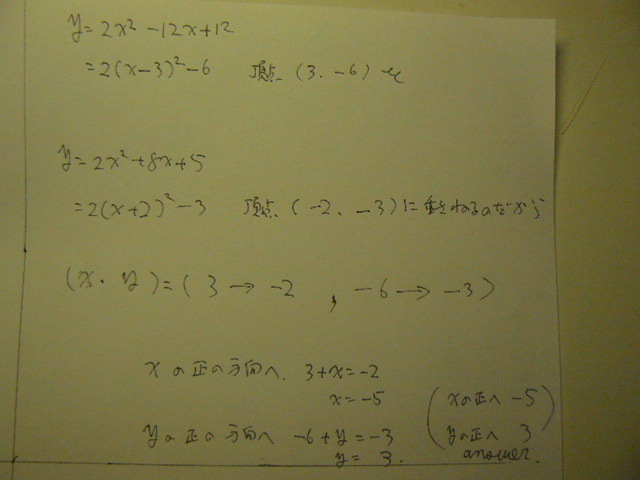 y=2x²-12x+12
=2(x-3)²-6 頂点 (3. -6) を
y=2x²+8x+5
=2(x+2)²-3 頂点 (-2、-3)に重ねるのだから
(x・y)=(3→-2 , -6→-3)
xの正の方向へ. 3+x=-2
x=-5
yの正の方向へ -6+y=-3
y= 3.
(xの正へ -5
yの正へ 3)
answer.